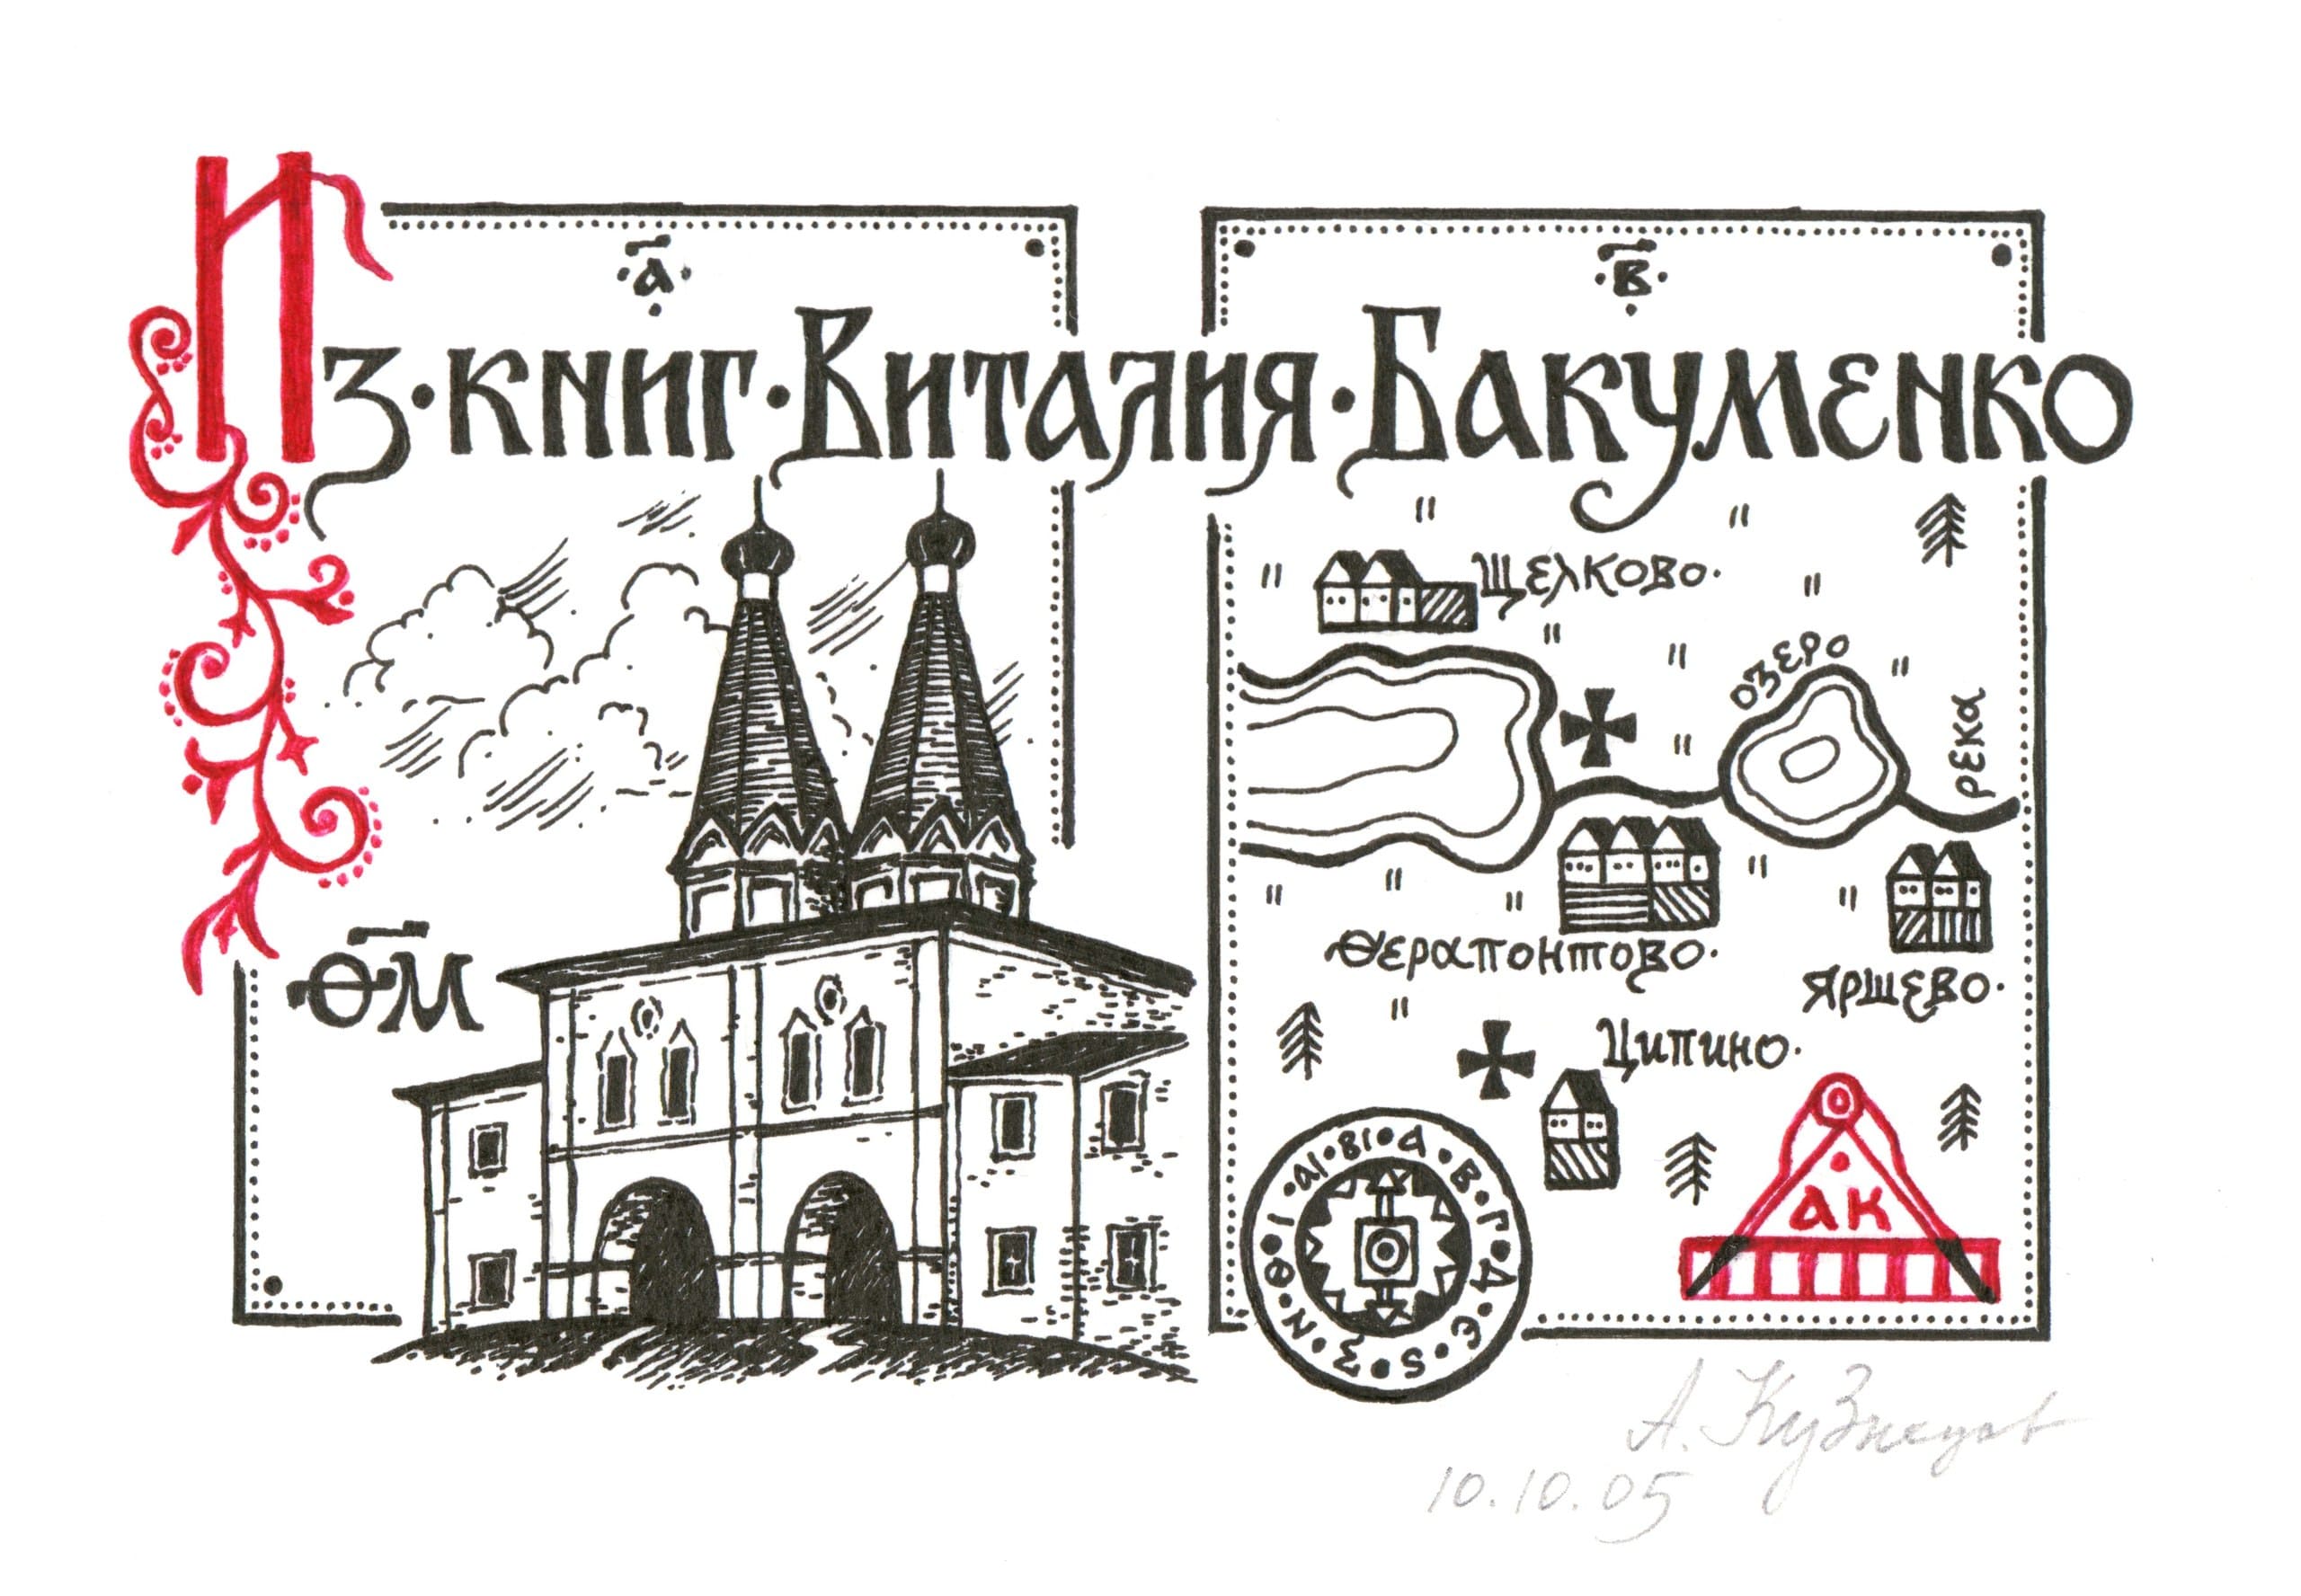 ·а҃·
·в҃·
Из·книг·Виталия·Бакуменко
Щелково·
озеро
река
Ѳерапонтово·
Яршево·
Ципино·
Ѳ҃М
·а·в·г·д·є·ѕ·з·н·ѳ·і·аі·ві
АК
А. Кузнецов
10.10.05